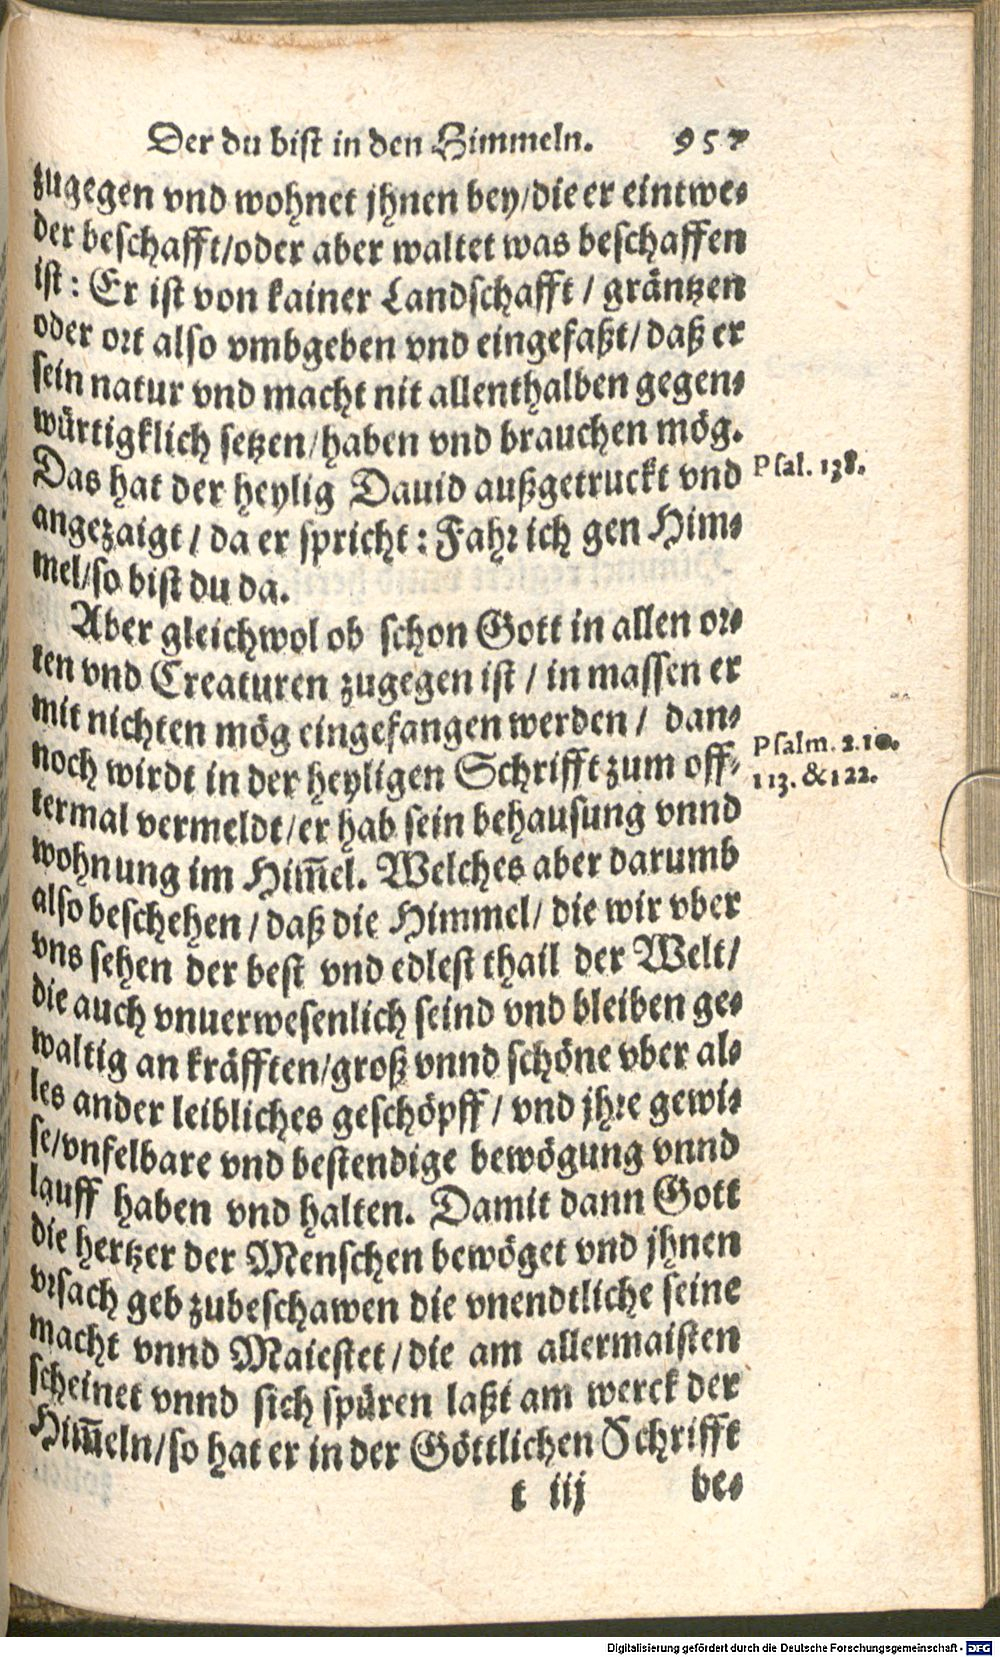 Der du bist in den Himmeln. 957
zugegen vnd wohnet jhnen bey/die er eintwe⸗
der beschafft/oder aber waltet was beschaffen
ist: Er ist von kainer Landschafft / gräntzen
oder ort also vmbgeben vnd eingefaßt/ daß er
sein natur vnd macht nit allenthalben gegen⸗
würtigklich setzen/haben vnd brauchen mög.
Das hat der heylig Dauid außgetruckt vnd
Psal. 138.
angezaigt / da er spricht: Fahr ich gen Him⸗
mel/so bist du da.
Aber gleichwol ob schon Gott in allen or⸗
ten vnd Creaturen zugegen ist / in massen er
mit nichten mög eingefangen werden / dan⸗
noch wirdt in der heyligen Schrifft zum off⸗
Psalm. 2.10.
113. &122.
termal vermeldt/er hab sein behausung vnnd
wohnung im Him̄el. Welches aber darumb
also beschehen / daß die Himmel/ die wir vber
vns sehen der best vnd edlest thail der Welt/
die auch vnuerwesenlich seind vnd bleiben ge⸗
waltig an kräfften/groß vnnd schöne vber al⸗
les ander leibliches geschöpff / vnd jhre gewi⸗
se/vnfelbare vnd bestendige bewögung vnnd
lauff haben vnd halten. Damit dann Gott
die hertzer der Menschen bewöget vnd jhnen
vrsach geb zubeschawen die vnendtliche seine
macht vnnd Maiestet/die am allermaisten
scheinet vnnd sich spüren laßt am werck der
Him̄eln/so hat er in der Göttlichen Schrifft
t iij be⸗
Digitalisierung gefördert durch die Deutsche Forschungsgemeinschaft - DFG